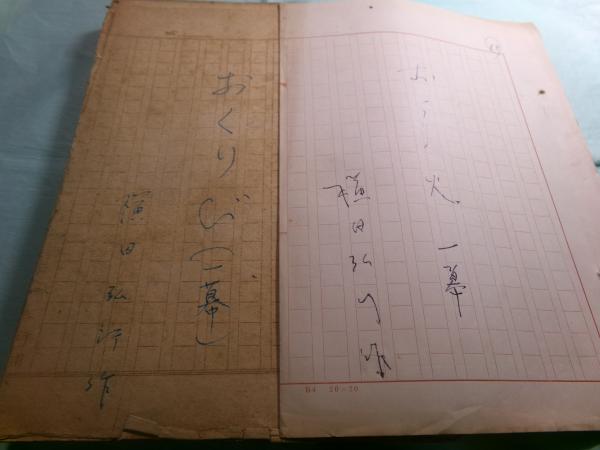 おくり火 一幕
横田弘行作
B4 20-20
おくりび（一幕）
横田弘行作